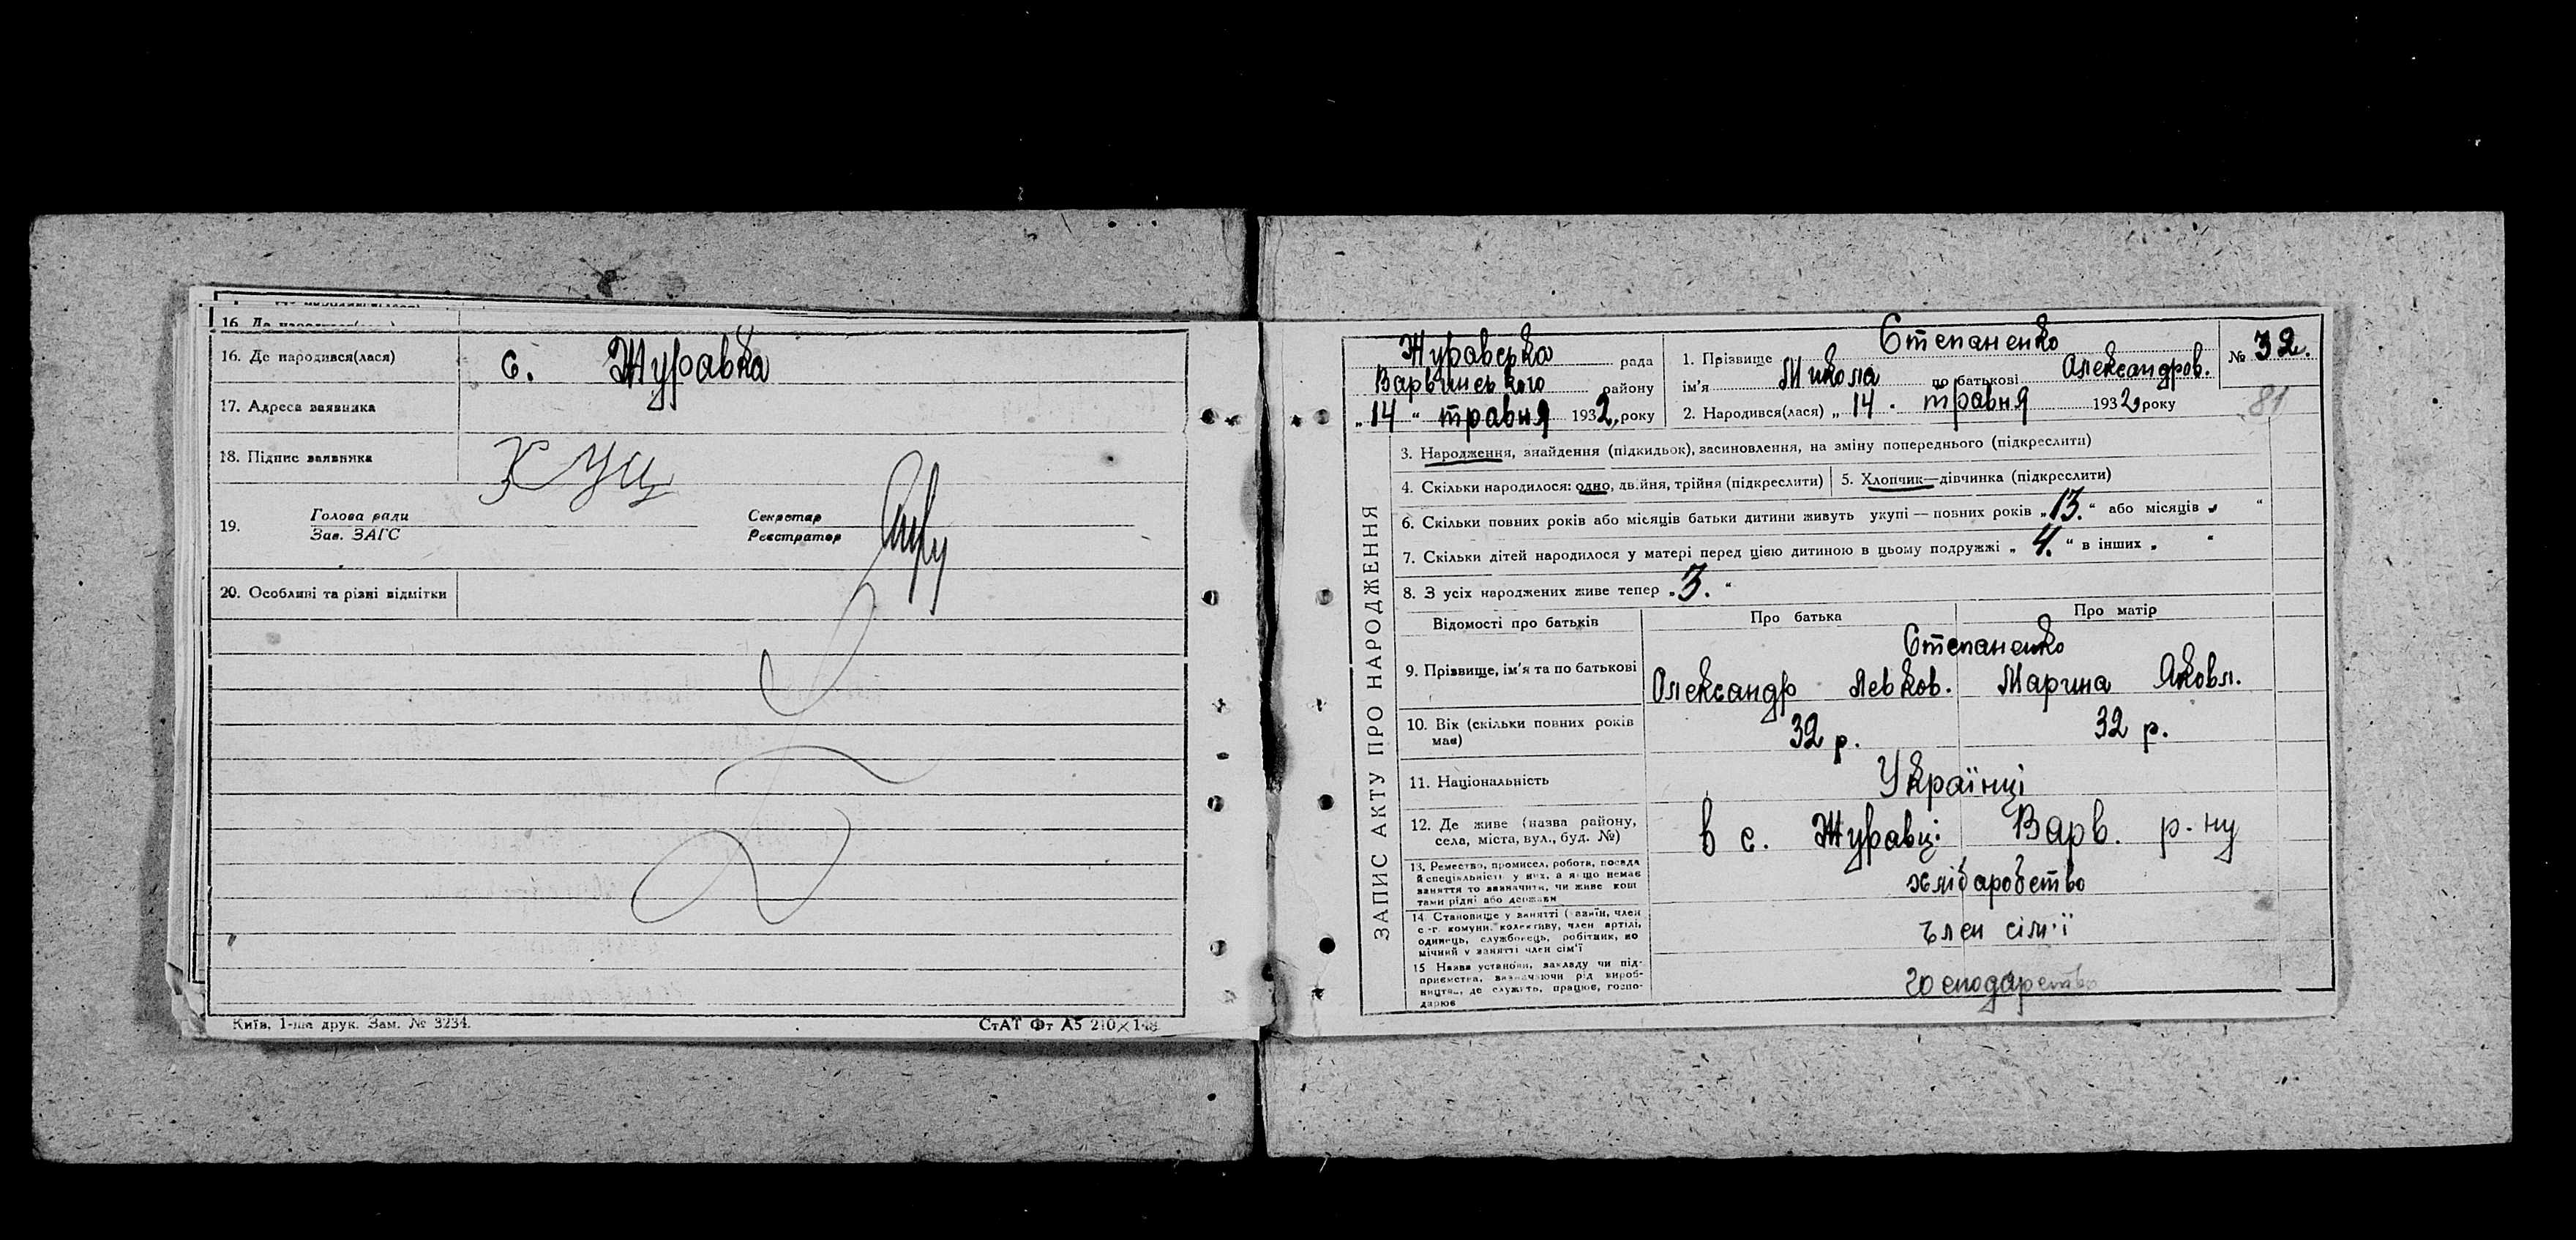 16. Де народився(лася) с. Журавка
17. Адреса заявника
18. Підпис заявника Кущ
19. Голова ради Секретар
Зав. ЗАГС Реєстратор
20. Особливі та різні відмітки
Київ, 1-ша друк. Зам. № 3234.
СтАТ Фт А5 210×148
ЗАПИС АКТУ ПРО НАРОДЖЕННЯ
Журавська рада
Варвинського району
„14“ травня 1932 року
1. Прізвище Степаненко
ім'я Микола по батькові Александров.
2. Народився(лася) „14. травня 1932 року
№ 32.
81
3. Народження, знайдення (підкидьок), засиновлення, на зміну попереднього (підкреслити)
4. Скільки народилося: одно, двійня, трійня (підкреслити)
5. Хлопчик—дівчинка (підкреслити)
6. Скільки повних років або місяців батьки дитини живуть укупі — повних років „13.“ або місяців „ “
7. Скільки дітей народилося у матері перед цією дитиною в цьому подружжі „4.“ в інших „ “
8. З усіх народжених живе тепер „3.“
Відомості про батьків Про батька Про матір
Степаненко
9. Прізвище, ім'я та по батькові Олександр Левков. Марина Яковл.
10. Вік (скільки повних років має) 32 р. 32 р.
11. Національність Українці
12. Де живе (назва району, села, міста, вул., буд. №) в с. Журавці Варв. р-ну
13. Ремество, промисел, робота, посада
й спеціяльність у них, а якщо немає
заняття то зазначити, чи живе кош
тами рідні або держави
хліборобство
14. Становище у занятті (хазяїн, член
с.-г. комуни, колективу, член артілі,
одинець, службовець, робітник, по
мічний у занятті член сім'ї
член сім'ї
15 Назва установи, закладу чи під-
приємства, визначаючи рід вироб-
ництва, де служить, працює, госпо-
дарює
господарство